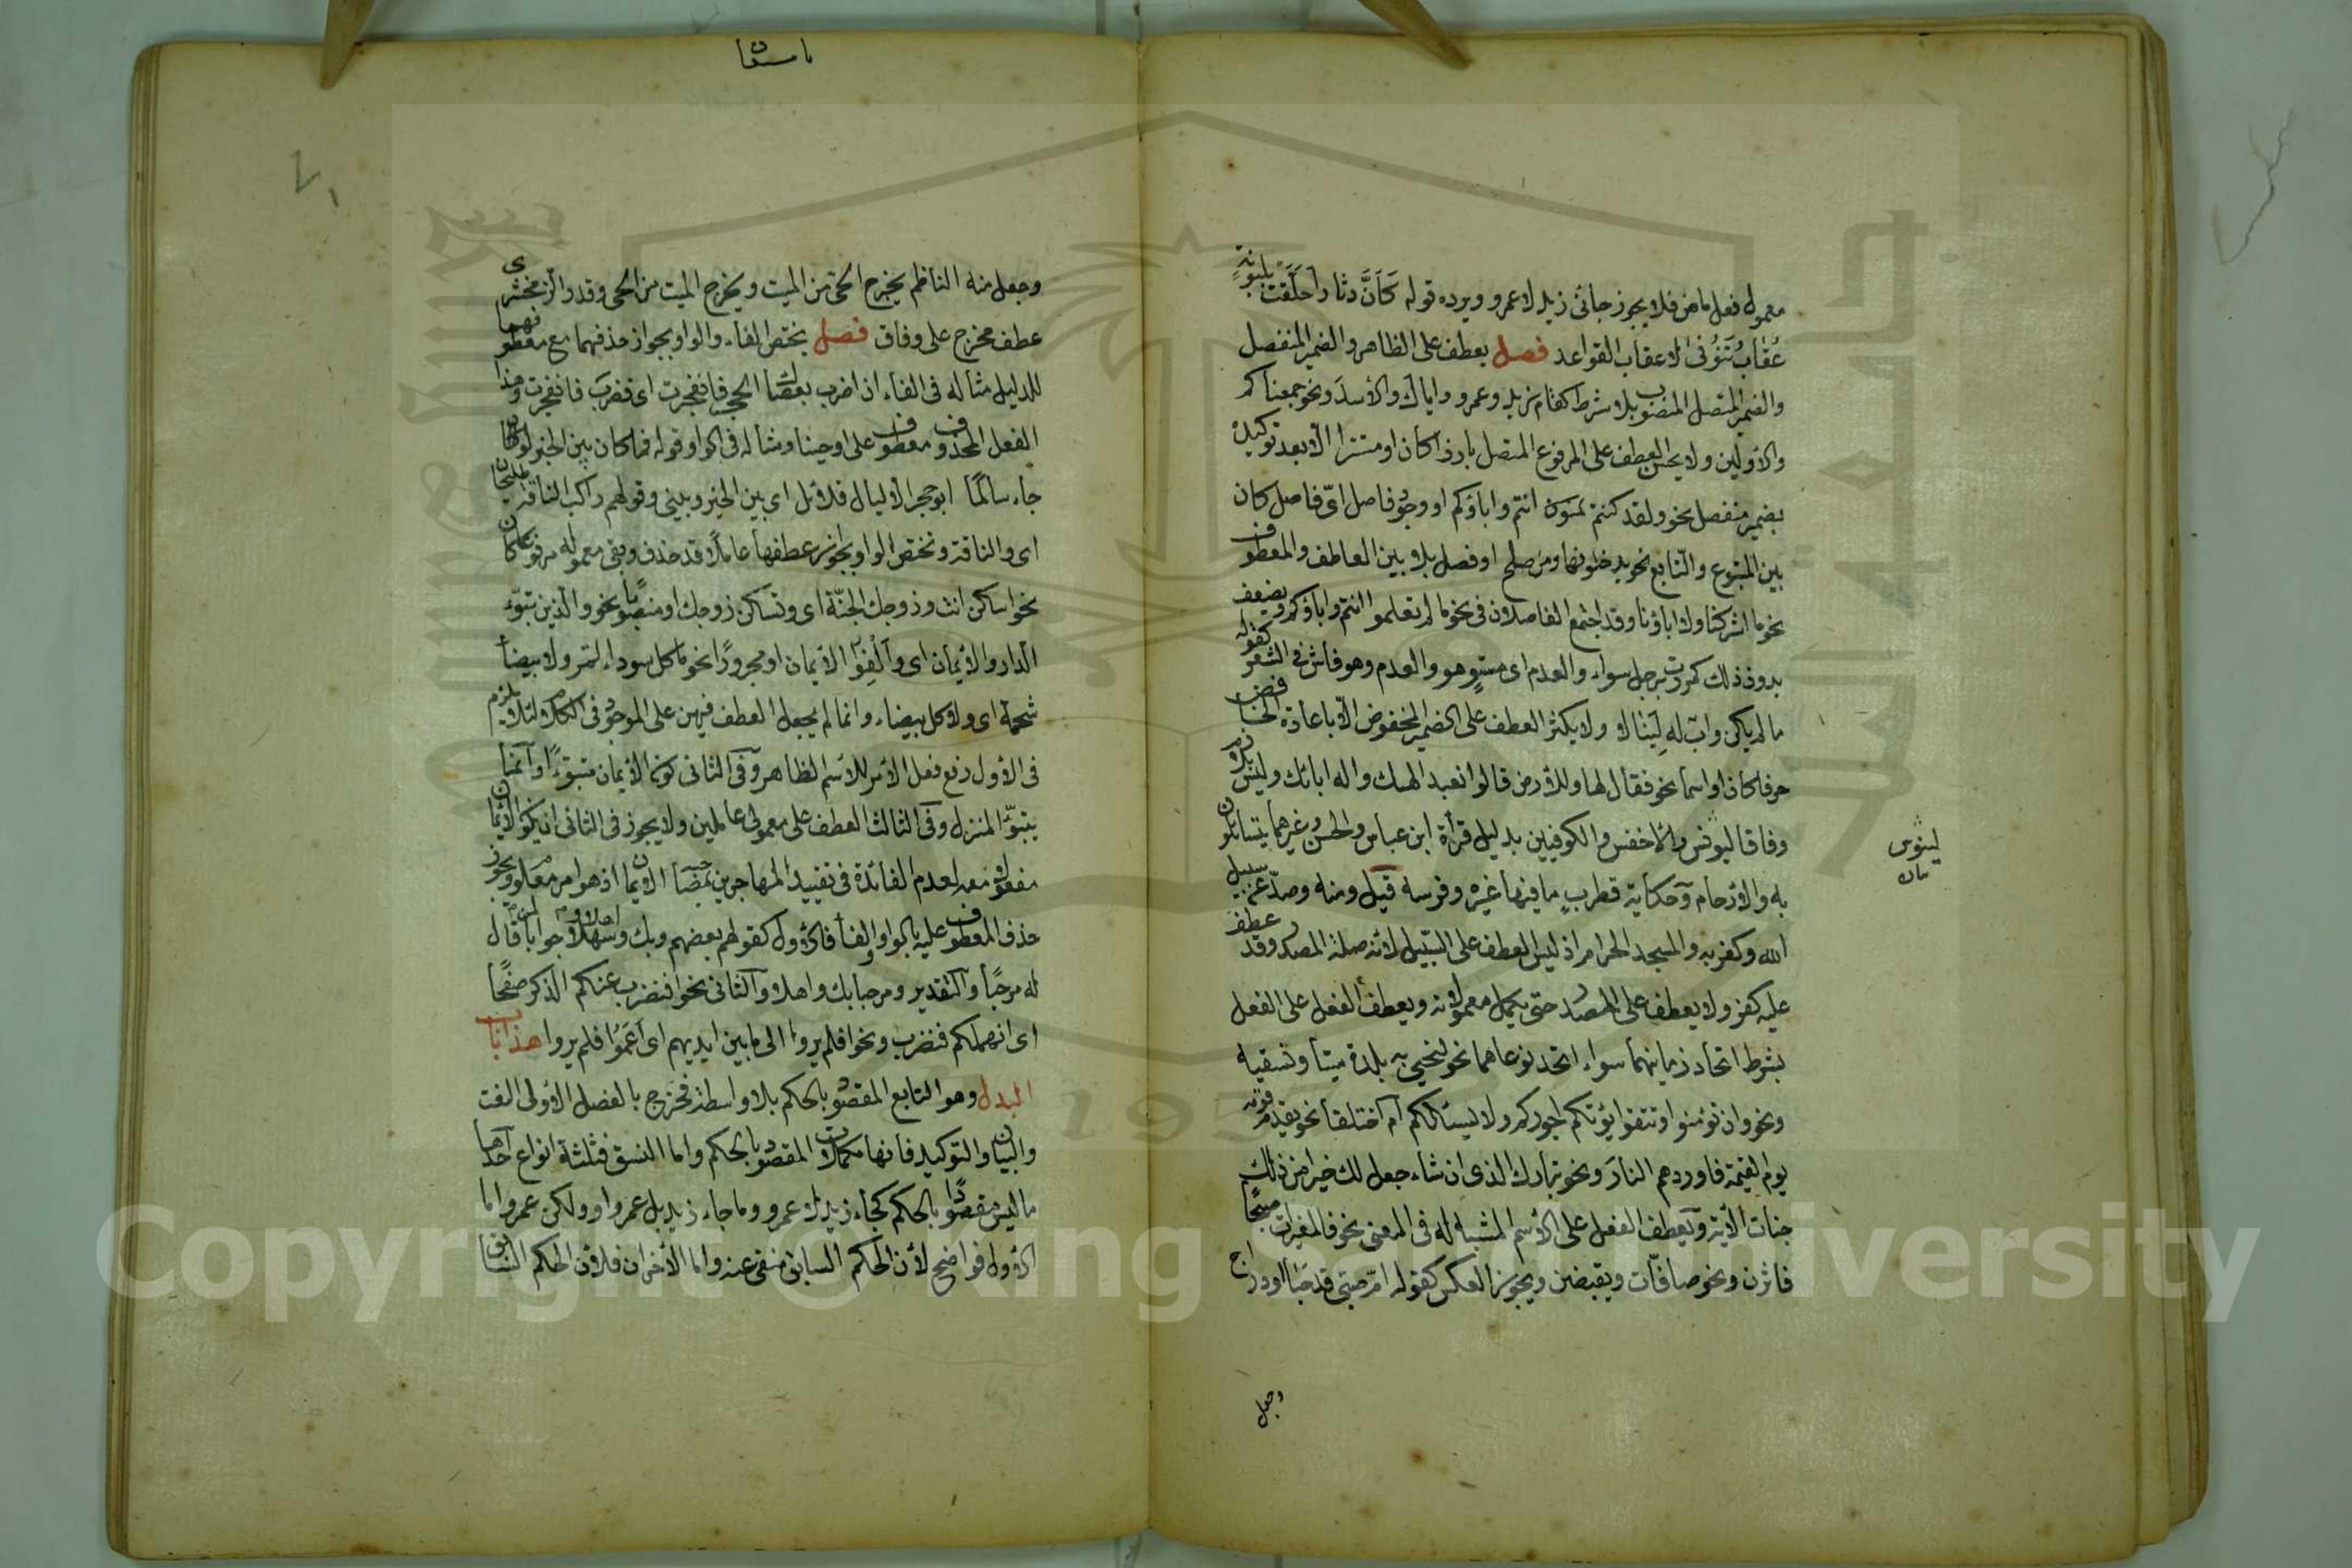 معمول فعل ماض فلا يجوز جاءني زيد لا عمرو ويرده قوله كَأنَّ دثارا حَلَّقت بلبونه
عُقابُ تَنُوفى لا عقاب القواعد فصل يعطف على الظاهر والضمير المنفصل
والضمير المتصل المنصوب بلا شرط كقام زيد وعمرو واياك والأسدَ ونحو جمعناكم
والأولين ولا يحسن العطف على المرفوع المتصل بارزا كان او مستترا الا بعد توكيده
بضمير منفصل نحو ولقد كنتم انتم واباؤكم او وجود فاصل اىّ فاصل كان
بين المتبوع والتابع نحو يدخلونها ومن صلح او فصل بلا بين العاطف والمعطوف
نحو ما اشركنا ولا اباؤنا وقد اجتمع الفاصلان في نحو ما لم تعلموا انتم ولا اباؤكم ويضعف
بدون ذلك كمررت برجل سواء والعدم اى مستوٍ هو والعدم وهو فاش في الشعر كقوله
ما لم يكن واب له لينالا ولا يكثر العطف على الضمير المخفوض الا باعادة الخافض
حرفا كان او اسما نحو فقال لها وللأرض قالوا نعبد الهك واله ابائك وليس بلازم
وفاقا ليونس والاخفش والكوفيين بدليل قرأة ابن عباس والحسن وغيرهما يتساءلون
به والارحام وحكاية قطرب ما فيها غيره وفرسه قيل ومنه وصد عن سبيل
الله وكفر به والمسجد الحرام اذ ليس العطف على السبيل لأنه صلة المصدر وقد عطف
عليه كفر ولا يعطف على المصدر حتى يكمل معمولاته ويعطف الفعل على الفعل
بشرط اتحاد زمانيهما سواء اتحد نوعاهما نحو لنحيى به بلدة ميتا ونسقيه
ونحو وان تؤمنوا وتتقوا يؤتكم اجوركم ولا يسئلكم ام اختلفا نحو يقدم قومه
يوم القيمة فاوردهم النارَ ونحو تبارك الذى ان شاء جعل لك خيرا من ذلك
جنات الأية ويعطف الفعل على الأسم المشبه له في المعنى نحو فالمغيرات صبحًا
فاثرن ونحو صافّات ويقبضن ويجوز العكس كقوله ام صبى قد حبا او دارج
وجعل
ليونس
وجعل منه الناظم يخرج الحى من الميت ويخرج الميت من الحى وقدر الزمخشرى
عطف مخرج على وفاق فصل يختص الفاء والواو بجواز حذفهما مع معطوفهما
للدليل مثاله في الفاء ان اضرب بعصاك الحجر فانفجرت اى فضرب فانفجرت وهذا
الفعل المحذوف معطوف على اوحينا ومثاله في الواو قوله فما كان بين الخير لو كان
جاء سالمًا ابو حجر الا ليال قلائل اى بين الخير وبيني وقولهم راكب الناقة طليحان
اى والناقة وتختص الواو بجواز عطفها عاملا قد حذف وبقى معموله مرفوعا كان
نحو اسكن انت وزوجك الجنّة اى وتسكن زوجك او منصوبا نحو والذين تبوّء
الدار والأيمان اى وَألِفُوا الأيمان او مجرورًا نحو ما كل سوداء تمر ولا بيضاء
شحمة اى ولا كل بيضاء وانما لم يجعل العطف فيهن على الموجود في الكلام لئلا يلزم
في الأول رفع فعل الأمر للأسم الظاهر وفي الثاني كون الأيمان متبوءًا وانما
يتبوّء المنزل وفي الثالث العطف على معمولى عاملين ولا يجوز في الثاني ان يكون الأيمان
مفعولا معه لعدم الفائدة في تقييد المهاجرين بمصاحبة الايمان اذ هو امر معلوم ويجوز
حذف المعطوف عليه بالواو والفاء فالأول كقولهم بعضهم وبك واهلا وسهلا جوابا لمن قال
له مرحبًا والتقدير ومرحبا بك واهلا والثاني نحو افنضرب عنكم الذكر صفحًا
اى انهملكم فنضرب ونحو افلم يروا الى ما بين ايديهم اى أعَمُوا فلم يروا هذا باب
البدل وهو التابع المقصود بالحكم بلا واسطة فخرج بالفصل الاولى النعت
والبيان والتوكيد فانها مكملات المقصود بالحكم واما النسق فثلثة انواع احدها
ما ليس مقصودًا بالحكم كجاء زيد لا عمرو وما جاء زيد بل عمرو او ولكن عمرو اما
الأول فواضح لأن الحكم السابق منفي عنه واما الأخران فلان الحكم السابق
Copyright © King Saud University
195